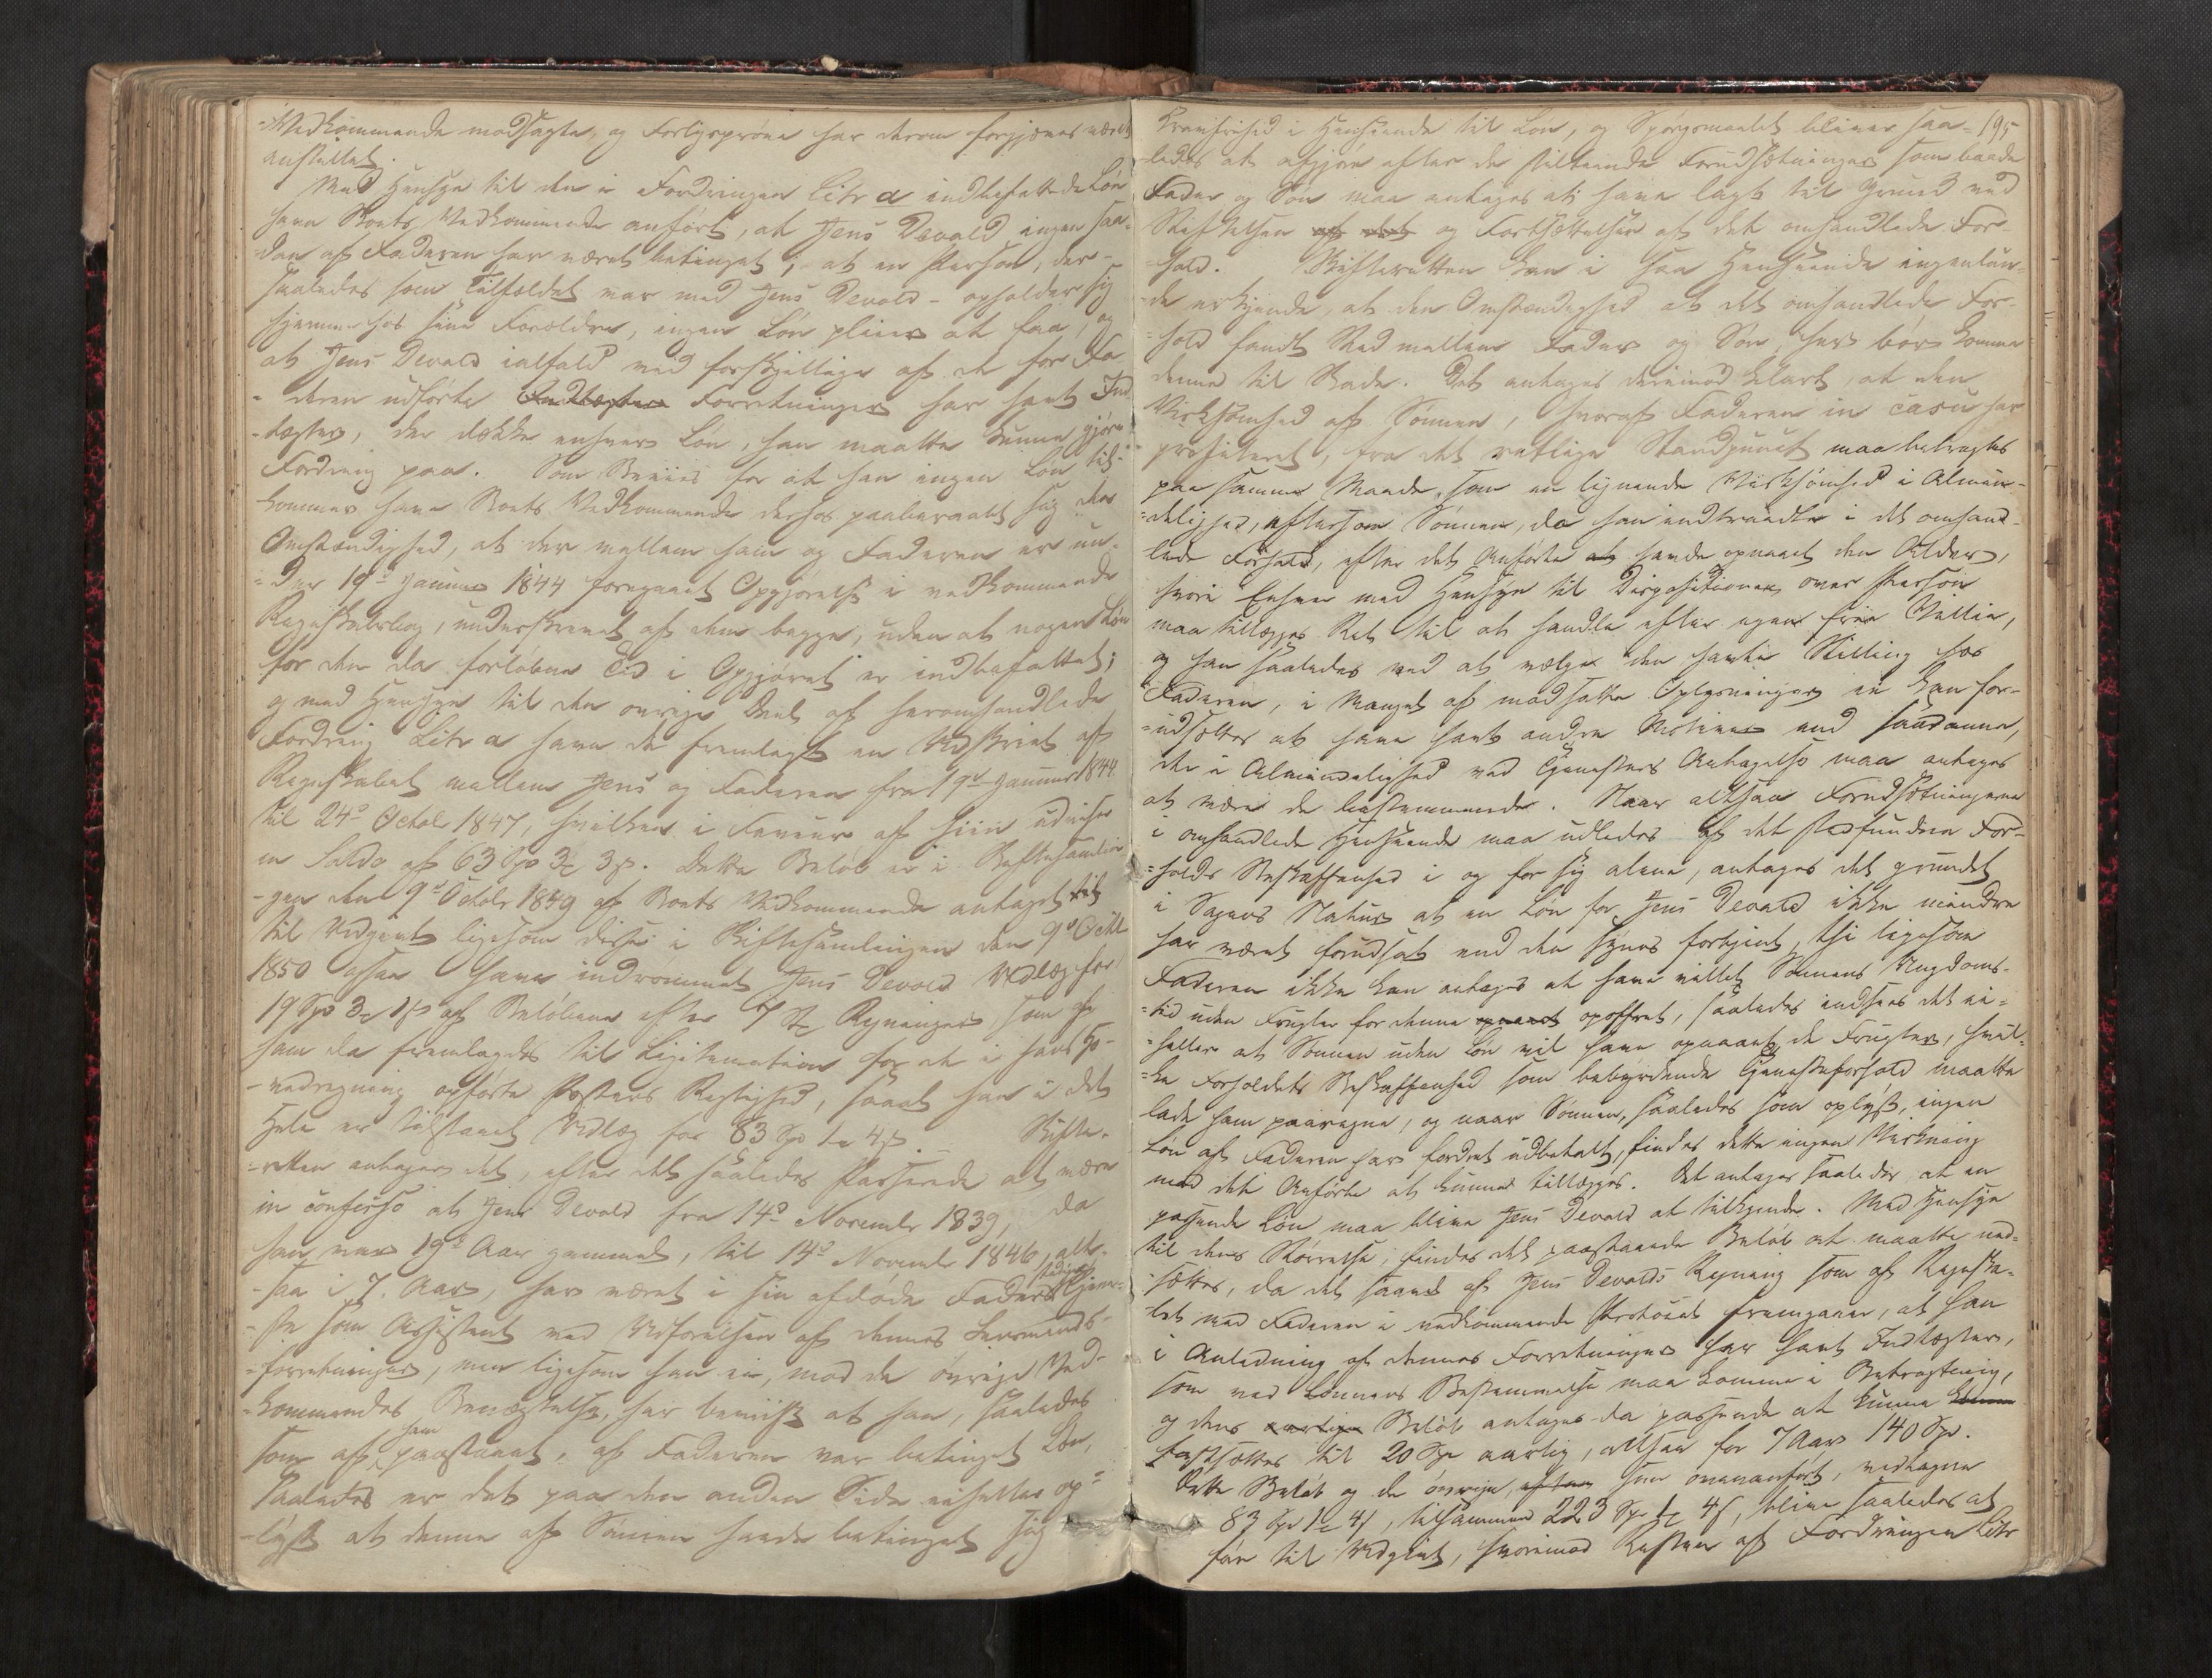 -Vedkommende modsagte, og Forligsprøve har derom forgjæves været
anstillet.
Med Hensyn til den i Fordringen Litr a indbefattede Løn
have Boets Vedkommende anført, at Jens Devold ingen saa-
dan af Faderen har været betinget; at en Person, der -
saaledes som Tilfældet var med Jens Devold - opholder sig
hjemme hos sine Forældre, ingen Løn pleier at faa, og
at Jens Devold ialfald ved forskjellige af de for Fa-
-deren udførte Indtægter Forretninger har havt Ind-
-tægter, der dække enhver Løn, han maatte kunne gjøre
Fordring paa. Som Beviis for at han ingen Løn til-
kommer have Boets Vedkommende derhos paaberaabt sig den
Omstændighed, at der mellem ham og Faderen er un-
=der 19de Januar 1844 foregaaet Opgjørelse i vedkommende
Regnskabsbog, underskrevet af dem begge, uden at nogen Løn
for den da forløbne Tid i Opgjøret er indbefattet;
og med Hensyn til den øvrige Deel af heromhandlede
Fordring Litr a have de fremlagt en Udskrivt af
Regnskabet mellem Jens og Faderen fra 19de Januar 1844
til 24de Octob 1847, hvilken i Faveur af hiin udviser
en Saldo af 63 Spd 3 # 3 s. Dette Beløb er i Skiftesamlin-
-gen den 9de Octobr 1849 af Boets Vedkommende antaget til
til Udgivt ligesom disse i Skiftesamlingen den 9de Octbr
1850 ogsaa have indrømmet Jens Devold Udlæg for
19 Spd 3 # 1 s af Beløbene efter 7 St Regninger, som af
ham da fremlagdes til Legitimation for de i hans Ho-
-vedregning opførte Posters Rigtighed, saaat han i det
Hele er tilstaaet Udlæg for 83 Spd 1 # 4 s Skifte-
-retten antager det, efter det saaledes Passerede at være
in confesso at Jens Devold fra 14de Novembr 1839, da
han var 19de Aar gammel, til 14de Novembr 1846, alt-
-saa i 7 Aar, har været i sin afdøde Faders stadige Tjene-
-ste som Assistent ved Udførelsen af dennes Lensmands-
-forretninger, men ligesom han ei, mod de øvrige Ved-
-kommendes Benægtelse, har beviist at han, saaledes
som af ham paastaaet, af Faderen var betinget Løn,
saaledes er det paa den anden Side eiheller op=
-lyst at denne af Sønnen havde betinget sig
195
Kravfrihed i Henseende til Løn, og Spørgsmaalet bliver saa=
-ledes at afgjøre efter de stiltiende Forudsætninger som baade
Fader og Søn maa antages at have lagt til Grund ved
Stiftelsen af det og Fortsættelsen af det omhandlede For-
-hold. Skifteretten kan i saa Henseende ingenlun-
-de erkjende, at den Omstændighed at det omhandlede For-
=hold fandt Sted mellem Fader og Søn, her bør komme
denne til Skade. Det antages derimod klart, at den
Virksomhed af Sønnen, hvoraf Faderen in casu har
profiteret, fra det retlige Standpunct maa betragtes
paa samme Maade, som en lignende Virksomhed i Almin-
=delighed, eftersom Sønnen, da han indtraadte i det omhand-
lede Forhold, efter det Anførte at havde opnaaet den Alder,
hvori Enhver med Hensyn til Dispositionen over Person
maa tillægges Ret til at handle efter egen frie Villie,
og han saaledes ved at vælge den havte Stilling hos
Faderen, i Mangel af modsatte Oplysninger ei kan for-
=udsættes at have havt andre Motiver end saadanne,
der i Almindelighed ved Tjenesters Antagelse maa antages
at være de bestemmende. Naar altsaa Forudsætningerne
i omhandlede Henseende maa udledes af det stedfundne For-
=holds Beskaffenhed i og for sig alene, antages det grundet
i Sagens Natur at en Løn for Jens Devold ikke mindre
har været forudsat end den synes fortjent, thi ligesom
Faderen ikke kan antages at have villet Sønnens Ungdoms-
-tid uden Frugter for denne opnaaet opoffret, saaledes indsees det ei=
-heller at Sønnen uden Løn vil have opnaaet de Frugter, hvil-
=ke Forholdets Beskaffenhed som bebyrdende Tjenesteforhold maatte
lade ham paaregne, og naar Sønnen, saaledes som oplyst, ingen
Løn af Faderen har fordret udbetalt, findes dette ingen Virkning
mod det Anførte at kunne tillægges. Det antages saaledes, at en
passende Løn maa blive Jens Devold at tilkjende. Med Hensyn
til dens Størrelse, findes det paastaaede Beløb at maatte ned-
sættes, da det saavel af Jens Devolds Regning som af Regnska-
-bet med Faderen i vedkommende Protocol fremgaaer, at han
i Anledning af dennes Forretninger har havt Indtægter,
som ved Lønnens Bestemmelse maa komme i Betragtning,
og dens aarlige Beløb antages da passende at kunne kunne
fastsættes til 20 Spd aarlig, altsaa for 7 Aar 140 Spd.
Dette Beløb og de øvrige, efter som ovenanført, vedtagne
83 Spd 1 # 4 s, tilsammen 223 Spd 1 # 4 s, blive saaledes at
føre til Udgivt, hvorimod Resten af Fordringen Litr